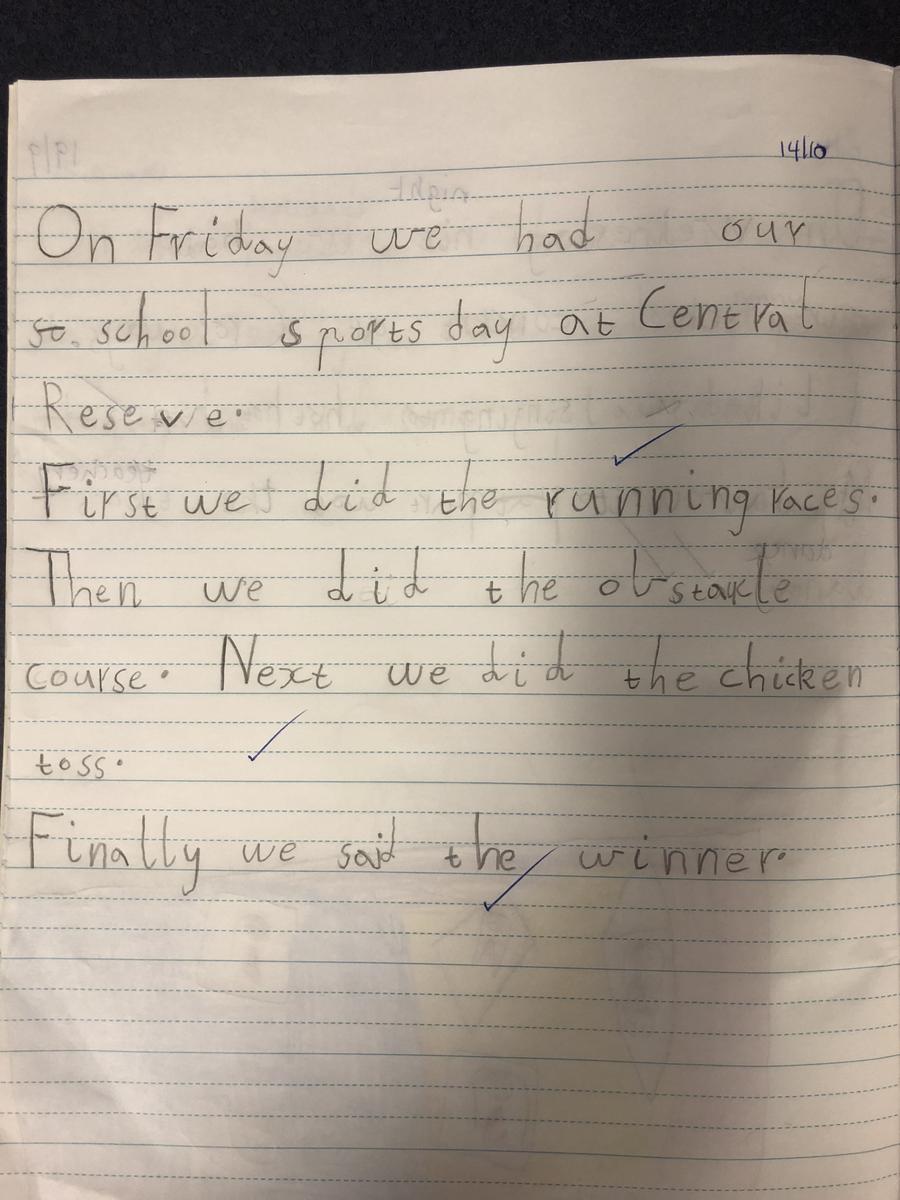 14/10
On Friday we had our
st. school sports day at Central
Reserve.
First we did the running races.
Then we did the obstacle
course. Next we did the chicken
toss.
Finally we said the winner.